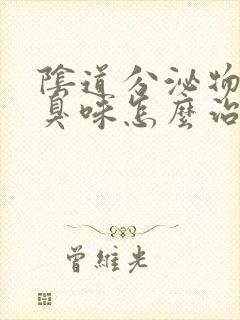 陰道分泌物
臭味怎麼治
曾維光